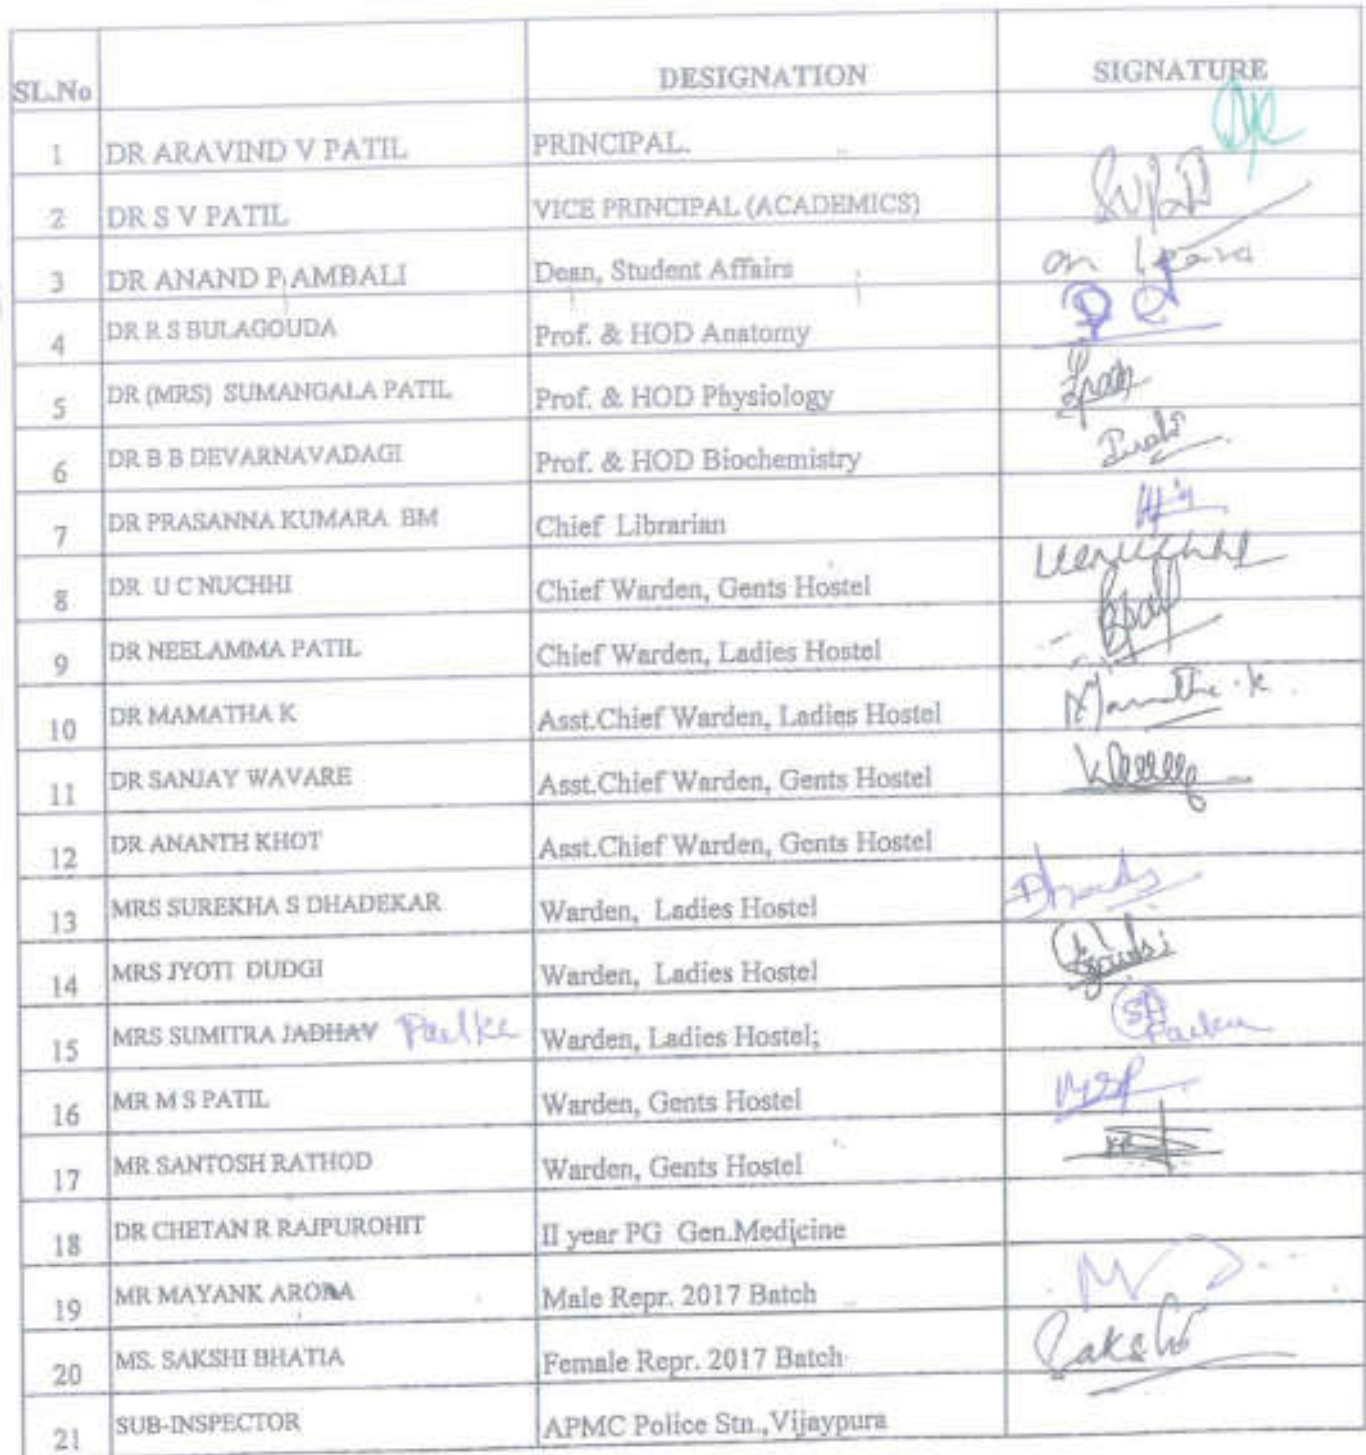 SL.No DESIGNATION SIGNATURE
1 DR ARAVIND V PATIL PRINCIPAL.
2 DR S V PATIL VICE PRINCIPAL (ACADEMICS) SVPatil
3 DR ANAND P AMBALI Dean, Student Affairs on leave
4 DR R S BULAGOUDA Prof. & HOD Anatomy
5 DR (MRS) SUMANGALA PATIL Prof. & HOD Physiology
6 DR B B DEVARNAVADAGI Prof. & HOD Biochemistry
7 DR PRASANNA KUMARA BM Chief Librarian
8 DR U C NUCHHI Chief Warden, Gents Hostel
9 DR NEELAMMA PATIL Chief Warden, Ladies Hostel
10 DR MAMATHA K Asst.Chief Warden, Ladies Hostel Mamatha.K
11 DR SANJAY WAVARE Asst.Chief Warden, Gents Hostel
12 DR ANANTH KHOT Asst.Chief Warden, Gents Hostel
13 MRS SUREKHA S DHADEKAR Warden, Ladies Hostel
14 MRS JYOTI DUDGI Warden, Ladies Hostel
15 MRS SUMITRA JADHAV Warden, Ladies Hostel;
16 MR M S PATIL Warden, Gents Hostel MSP
17 MR SANTOSH RATHOD Warden, Gents Hostel
18 DR CHETAN R RAJPUROHIT II year PG Gen.Medicine
19 MR MAYANK ARORA Male Repr. 2017 Batch
20 MS. SAKSHI BHATIA Female Repr. 2017 Batch Sakshi
21 SUB-INSPECTOR APMC Police Stn.,Vijaypura